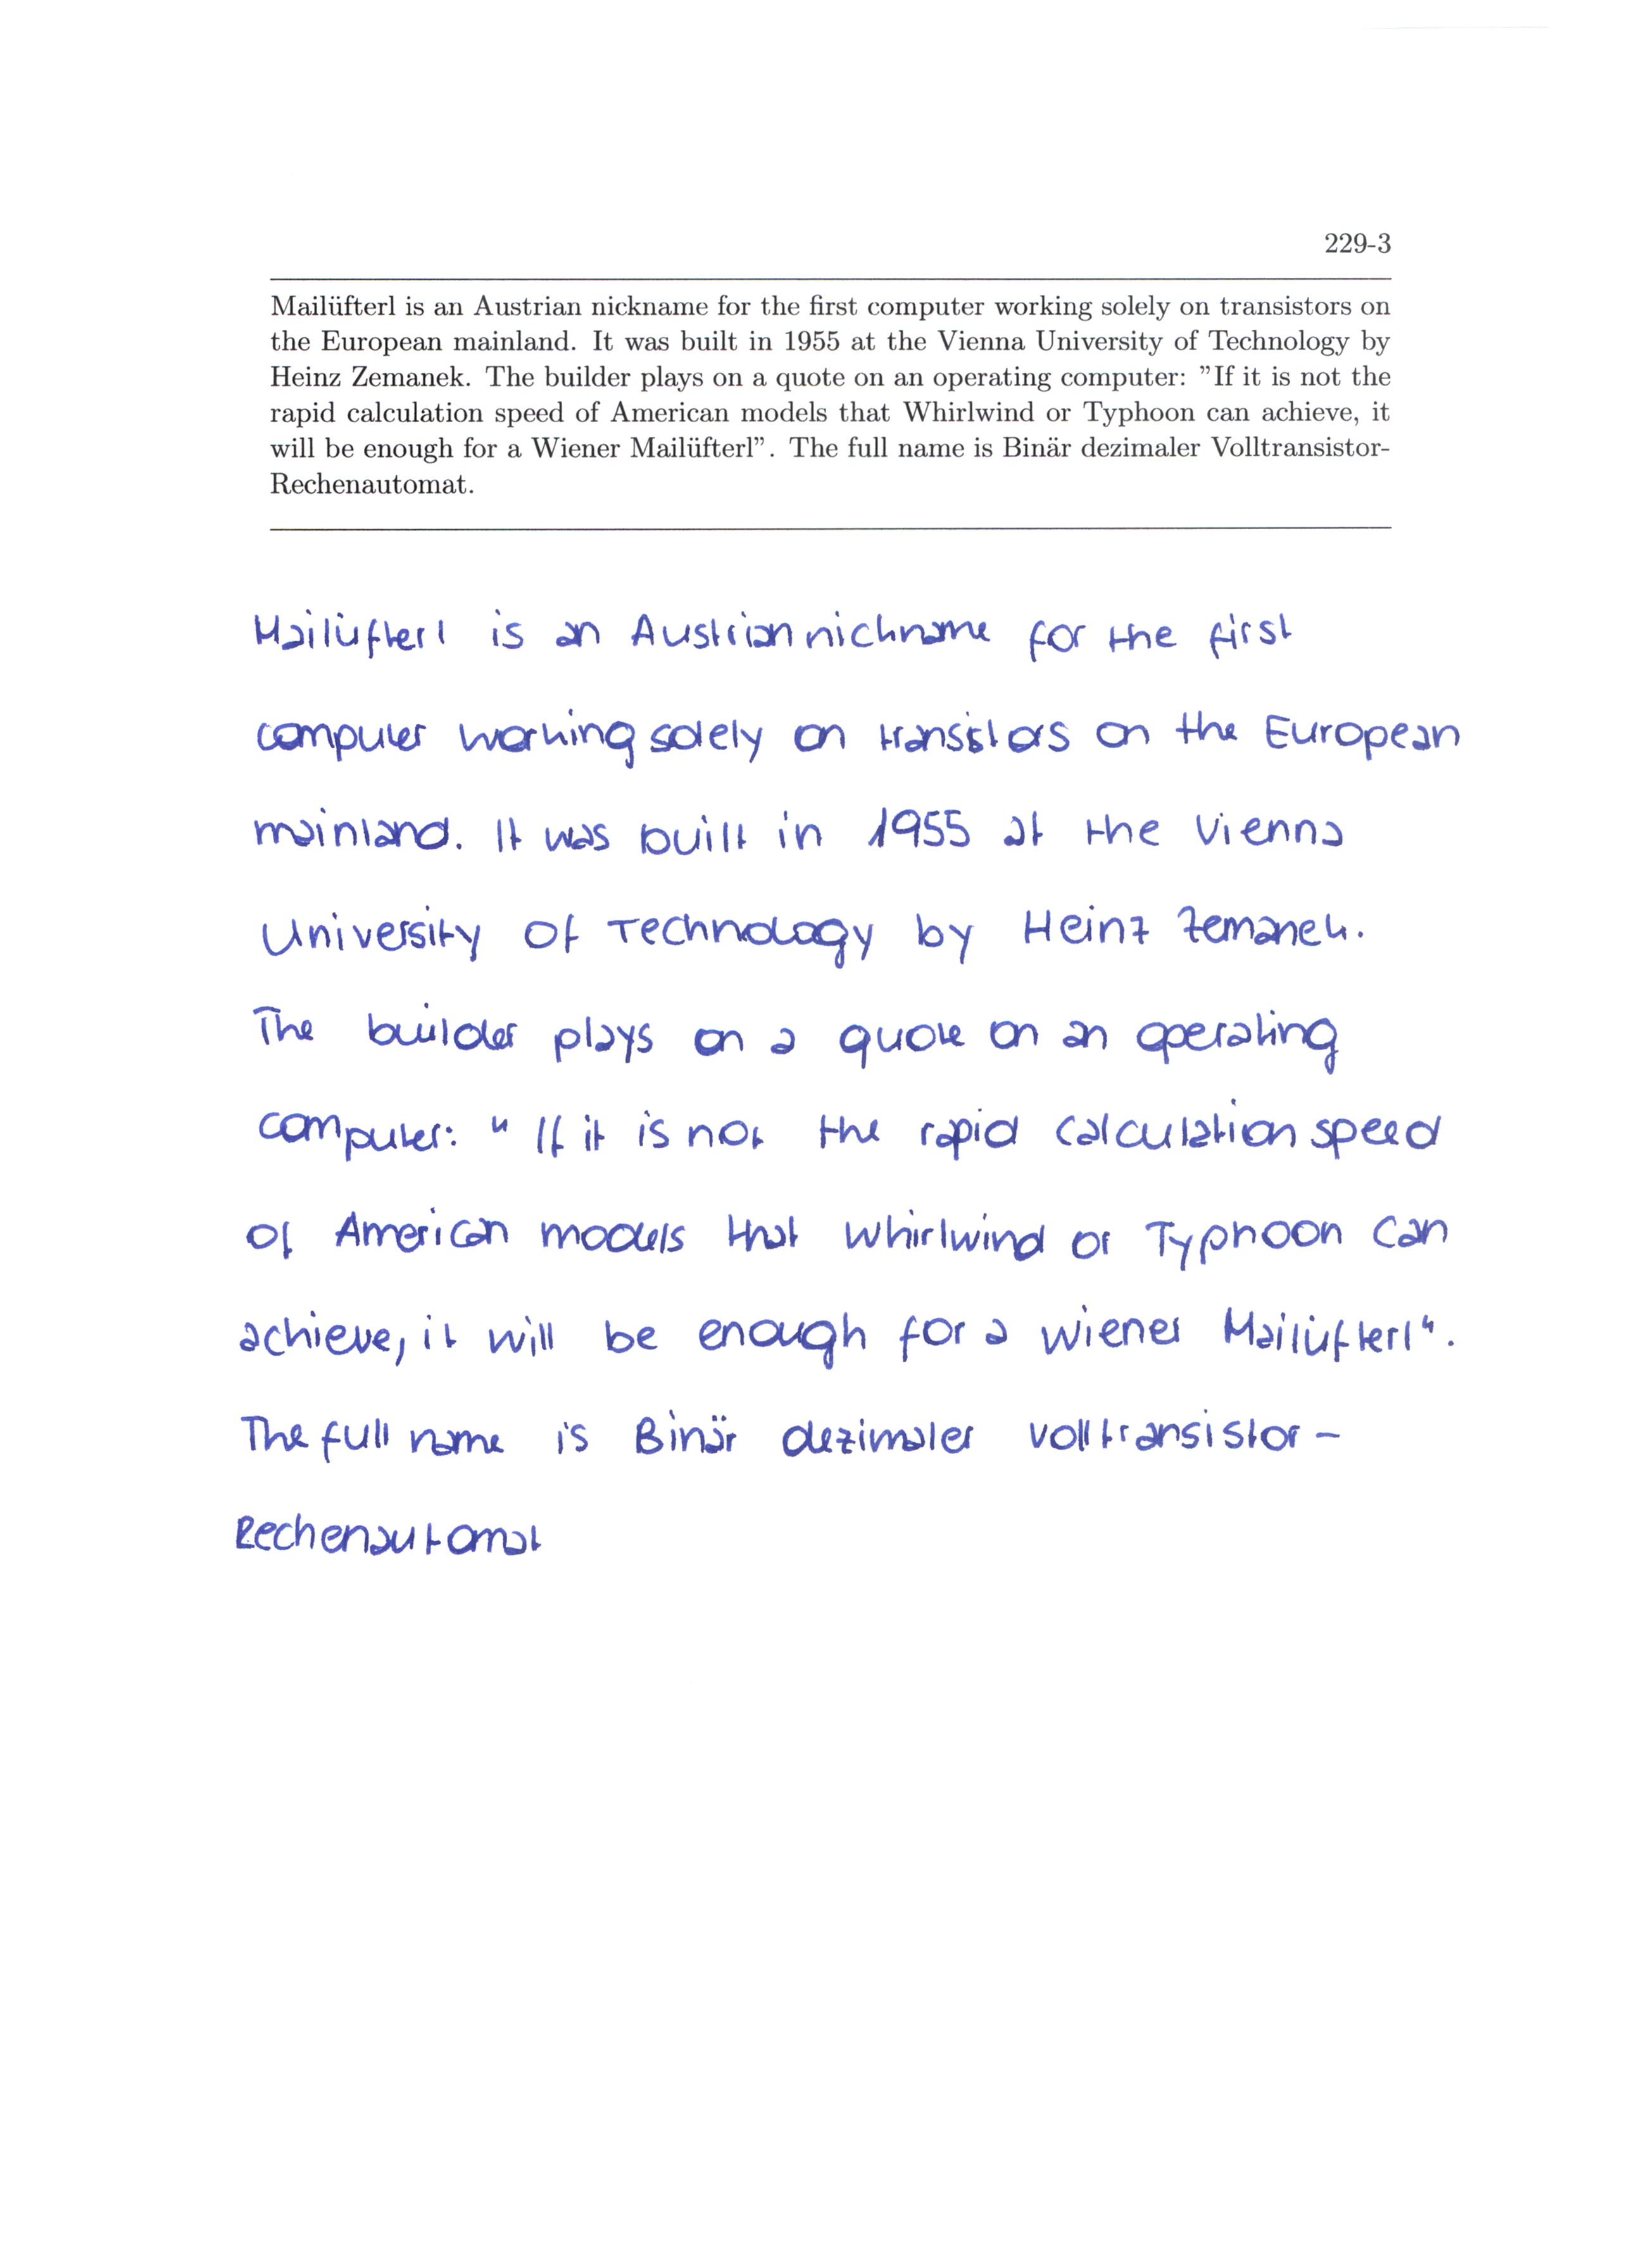 229-3
Mailüfterl is an Austrian nickname for the first computer working solely on transistors on
the European mainland. It was built in 1955 at the Vienna University of Technology by
Heinz Zemanek. The builder plays on a quote on an operating computer: ”If it is not the
rapid calculation speed of American models that Whirlwind or Typhoon can achieve, it
will be enough for a Wiener Mailüfterl”. The full name is Binär dezimaler Volltransistor-
Rechenautomat.
Mailüfterl is an Austrian nickname for the first
computer working solely on transistors on the European
mainland. It was built in 1955 at the Vienna
University of Technology by Heinz Zemanek.
The builder plays on a quote on an operating
computer: "If it is not the rapid calculation speed
of American models that Whirlwind or Typhoon can
achieve, it will be enough for a Wiener Mailüfterl".
The full name is Binär dezimaler Volltransistor-
Rechenautomat